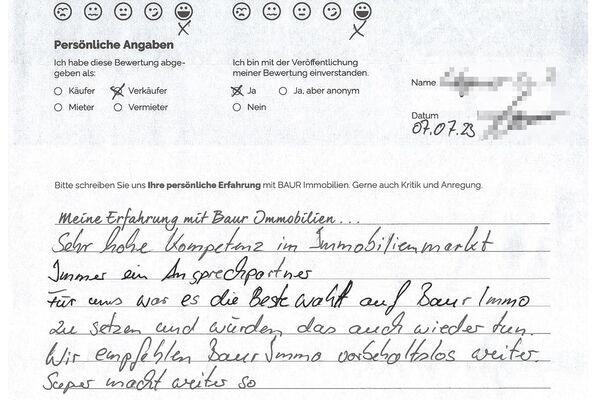 Persönliche Angaben
Ich habe diese Bewertung abge-
geben als:
Käufer Verkäufer
Mieter Vermieter
Ich bin mit der Veröffentlichung
meiner Bewertung einverstanden.
Ja Ja, aber anonym
Nein
Name
Datum
07.07.23
Bitte schreiben Sie uns Ihre persönliche Erfahrung mit BAUR Immobilien. Gerne auch Kritik und Anregung.
Meine Erfahrung mit Baur Immobilien...
Sehr hohe Kompetenz im Immobilienmarkt
Immer ein Ansprechpartner
Für uns war es die Beste Wahl auf Baur Immo
zu setzen und würden das auch wieder tun.
Wir empfehlen Baur Immo vorbehaltslos weiter.
Super macht weiter so